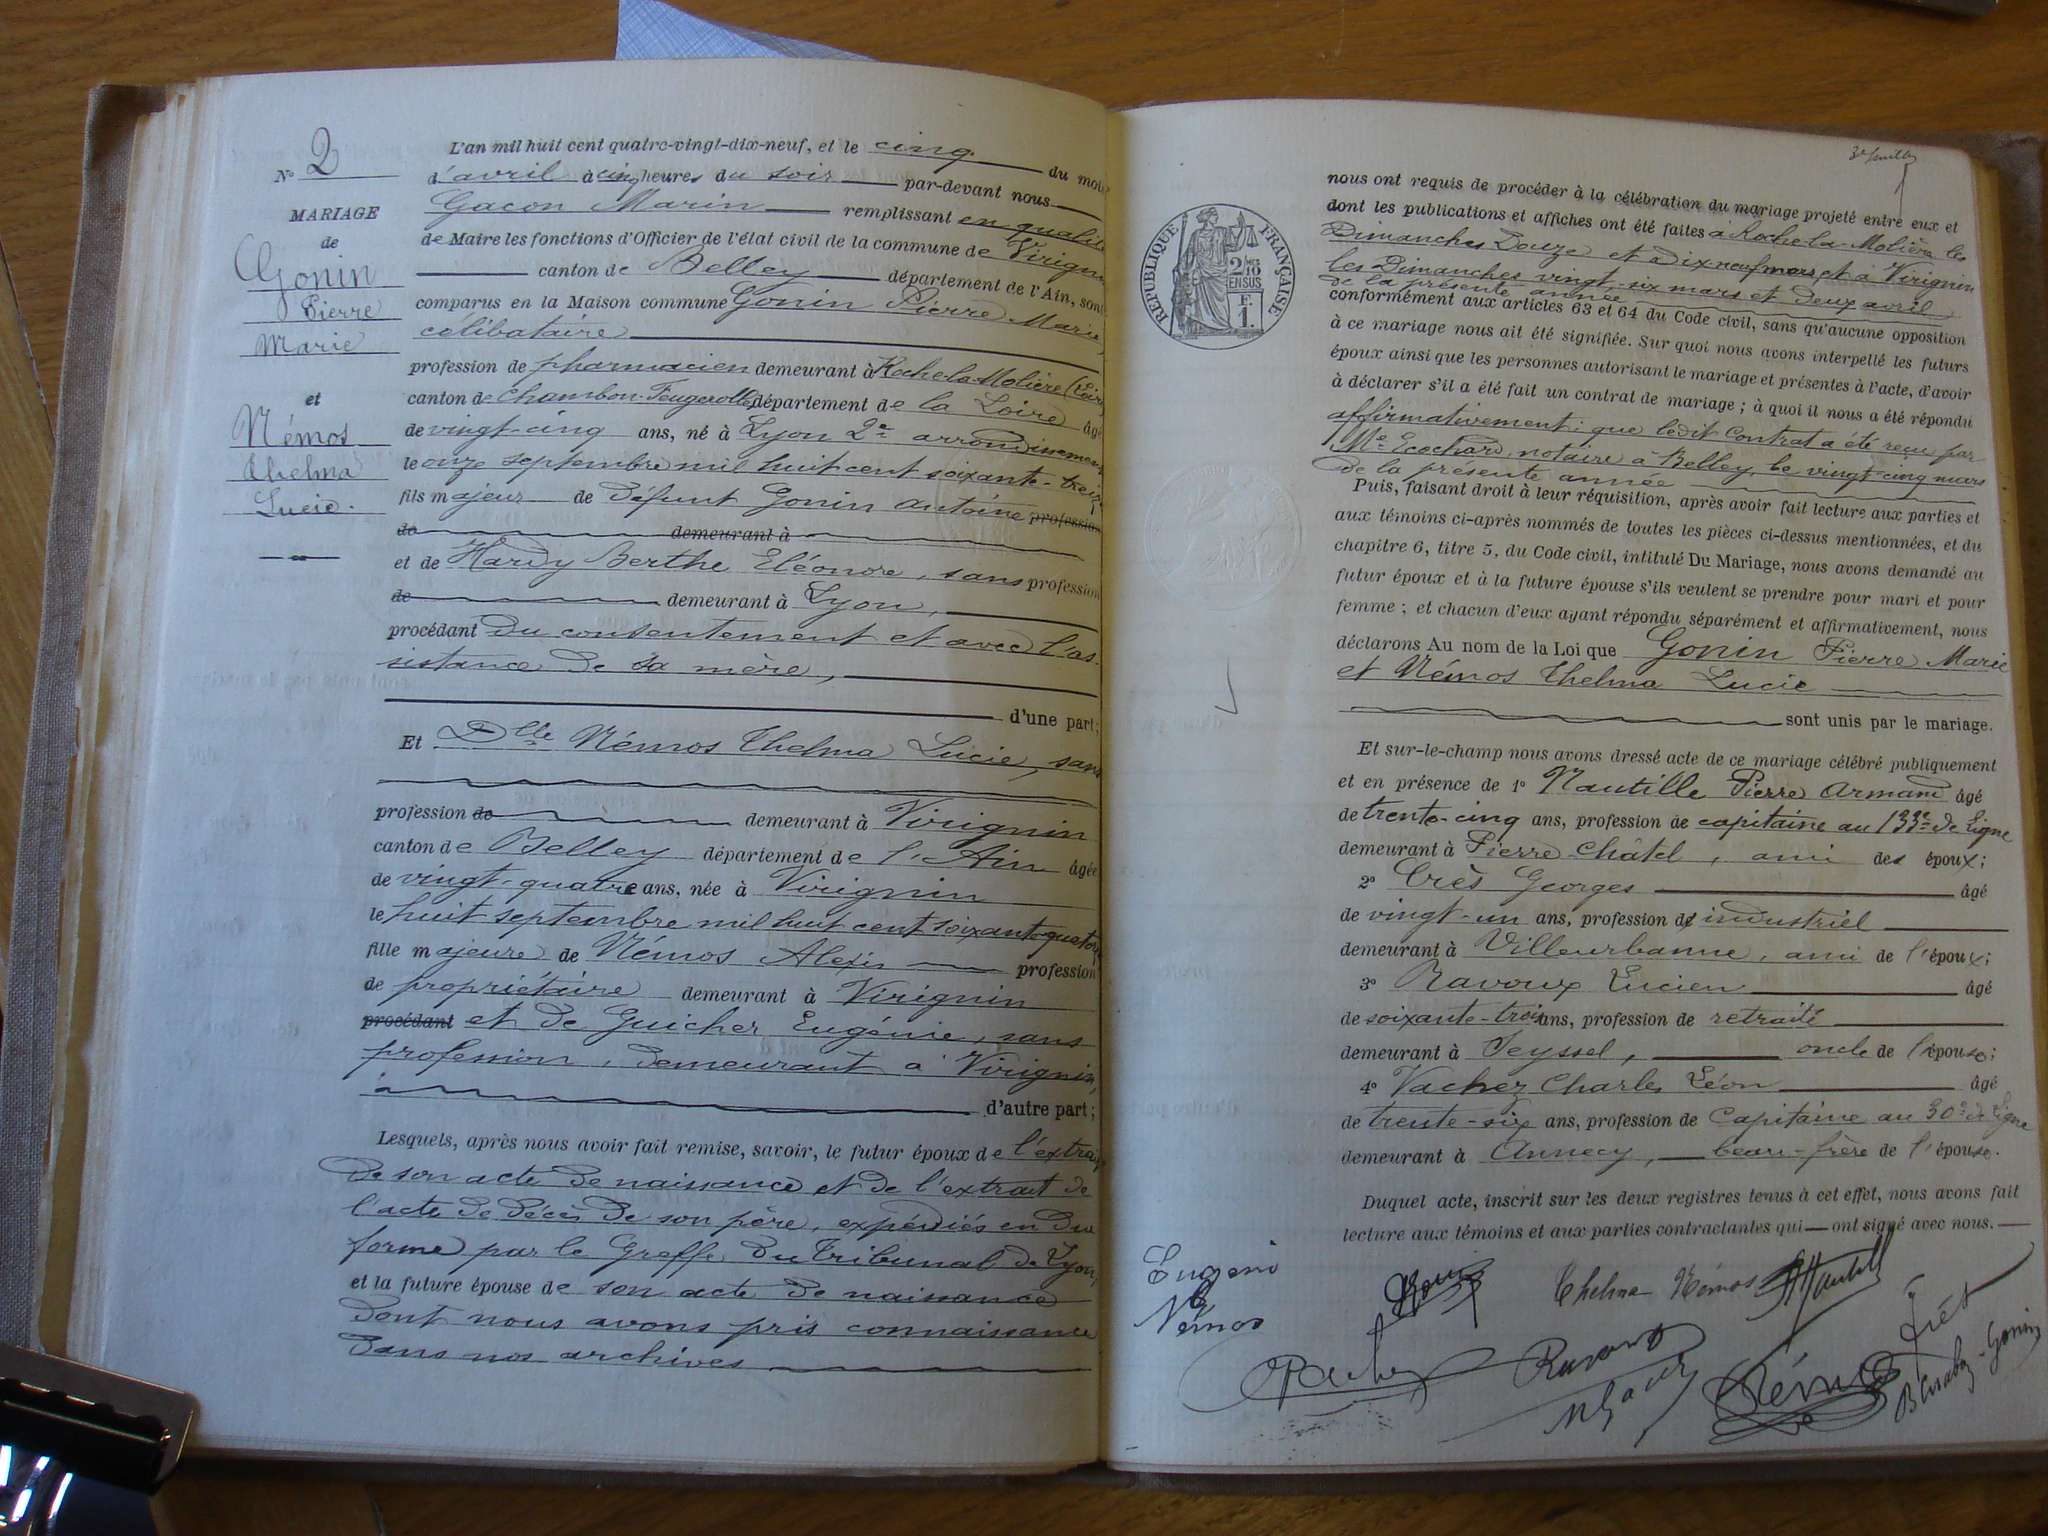 N° 2
MARIAGE
de
Gonin
Pierre
Marie
et
Némos
Thelma
Lucie.
L'an mil huit cent quatre-vingt-dix-neuf, et le cinq du mois
d'avril à cinq heures du soir par-devant nous
Gacon Marin remplissant en qualité
de Maire les fonctions d'Officier de l'état civil de la commune de Virignin
canton de Belley département de l'Ain, sont
comparus en la Maison commune Gonin Pierre Marie,
célibataire
profession de pharmacien demeurant à Roche-la-Molière (Loire)
canton de Chambon-Feugerolles département de la Loire âgé
de vingt-cinq ans, né à Lyon 2e arrondissement
le onze septembre mil huit cent soixante-treize
fils majeur de défunt Gonin Antoine profession
de demeurant à
et de Hardy Berthe Eléonore, sans profession
de demeurant à Lyon,
procédant du consentement et avec l'as-
sistance de sa mère,
d'une part;
Et Dlle Némos Thelma Lucie, sans
profession de demeurant à Virignin
canton de Belley département de l'Ain âgée
de vingt-quatre ans, née à Virignin
le huit septembre mil huit cent soixante-quatorze
fille majeure de Némos Alexis profession
de propriétaire demeurant à Virignin
procédant et de Guicher Eugénie, sans
profession, demeurant à Virignin,
d'autre part;
Lesquels, après nous avoir fait remise, savoir, le futur époux de l'extrait
de son acte de naissance et de l'extrait de
l'acte de décès de son père, expédiés en due
forme par le Greffe du Tribunal de Lyon,
et la future épouse de son acte de naissance
dont nous avons pris connaissance
dans nos archives
3e feuillet
RÉPUBLIQUE FRANÇAISE
2/10 EN SUS
F. 1.
nous ont requis de procéder à la célébration du mariage projeté entre eux et
dont les publications et affiches ont été faites à Roche-la-Molière les
Dimanches Douze et dix neuf mars, et à Virignin
les Dimanches vingt-six mars et deux avril
de la présente année
conformément aux articles 63 et 64 du Code civil, sans qu'aucune opposition
à ce mariage nous ait été signifiée. Sur quoi nous avons interpellé les futurs
époux ainsi que les personnes autorisant le mariage et présentes à l'acte, d'avoir
à déclarer s'il a été fait un contrat de mariage; à quoi il nous a été répondu
affirmativement: que ledit Contrat a été reçu par
Me Ecochard, notaire à Belley, le vingt-cinq mars
de la présente année
Puis, faisant droit à leur réquisition, après avoir fait lecture aux parties et
aux témoins ci-après nommés de toutes les pièces ci-dessus mentionnées, et du
chapitre 6, titre 5, du Code civil, intitulé Du Mariage, nous avons demandé au
futur époux et à la future épouse s'ils veulent se prendre pour mari et pour
femme; et chacun d'eux ayant répondu séparément et affirmativement, nous
déclarons Au nom de la Loi que Gonin Pierre Marie
et Némos Thelma Lucie
sont unis par le mariage.
Et sur-le-champ nous avons dressé acte de ce mariage célébré publiquement
et en présence de 1° Nautille Pierre Armand âgé
de trente-cinq ans, profession de capitaine au 133e de Ligne
demeurant à Pierre-Châtel, ami des époux;
2° Crès Georges âgé
de vingt-un ans, profession d'industriel
demeurant à Villeurbanne, ami de l'époux;
3° Ravoux Lucien âgé
de soixante-trois ans, profession de retraité
demeurant à Seyssel, oncle de l'épouse;
4° Vachez Charles Léon âgé
de trente-six ans, profession de Capitaine au 30e de Ligne
demeurant à Annecy, beau-frère de l'épouse.
Duquel acte, inscrit sur les deux registres tenus à cet effet, nous avons fait
lecture aux témoins et aux parties contractantes qui ont signé avec nous.
Eugénie
G
Némos
Gonin
Thelma Némos
Ravoux
Némos